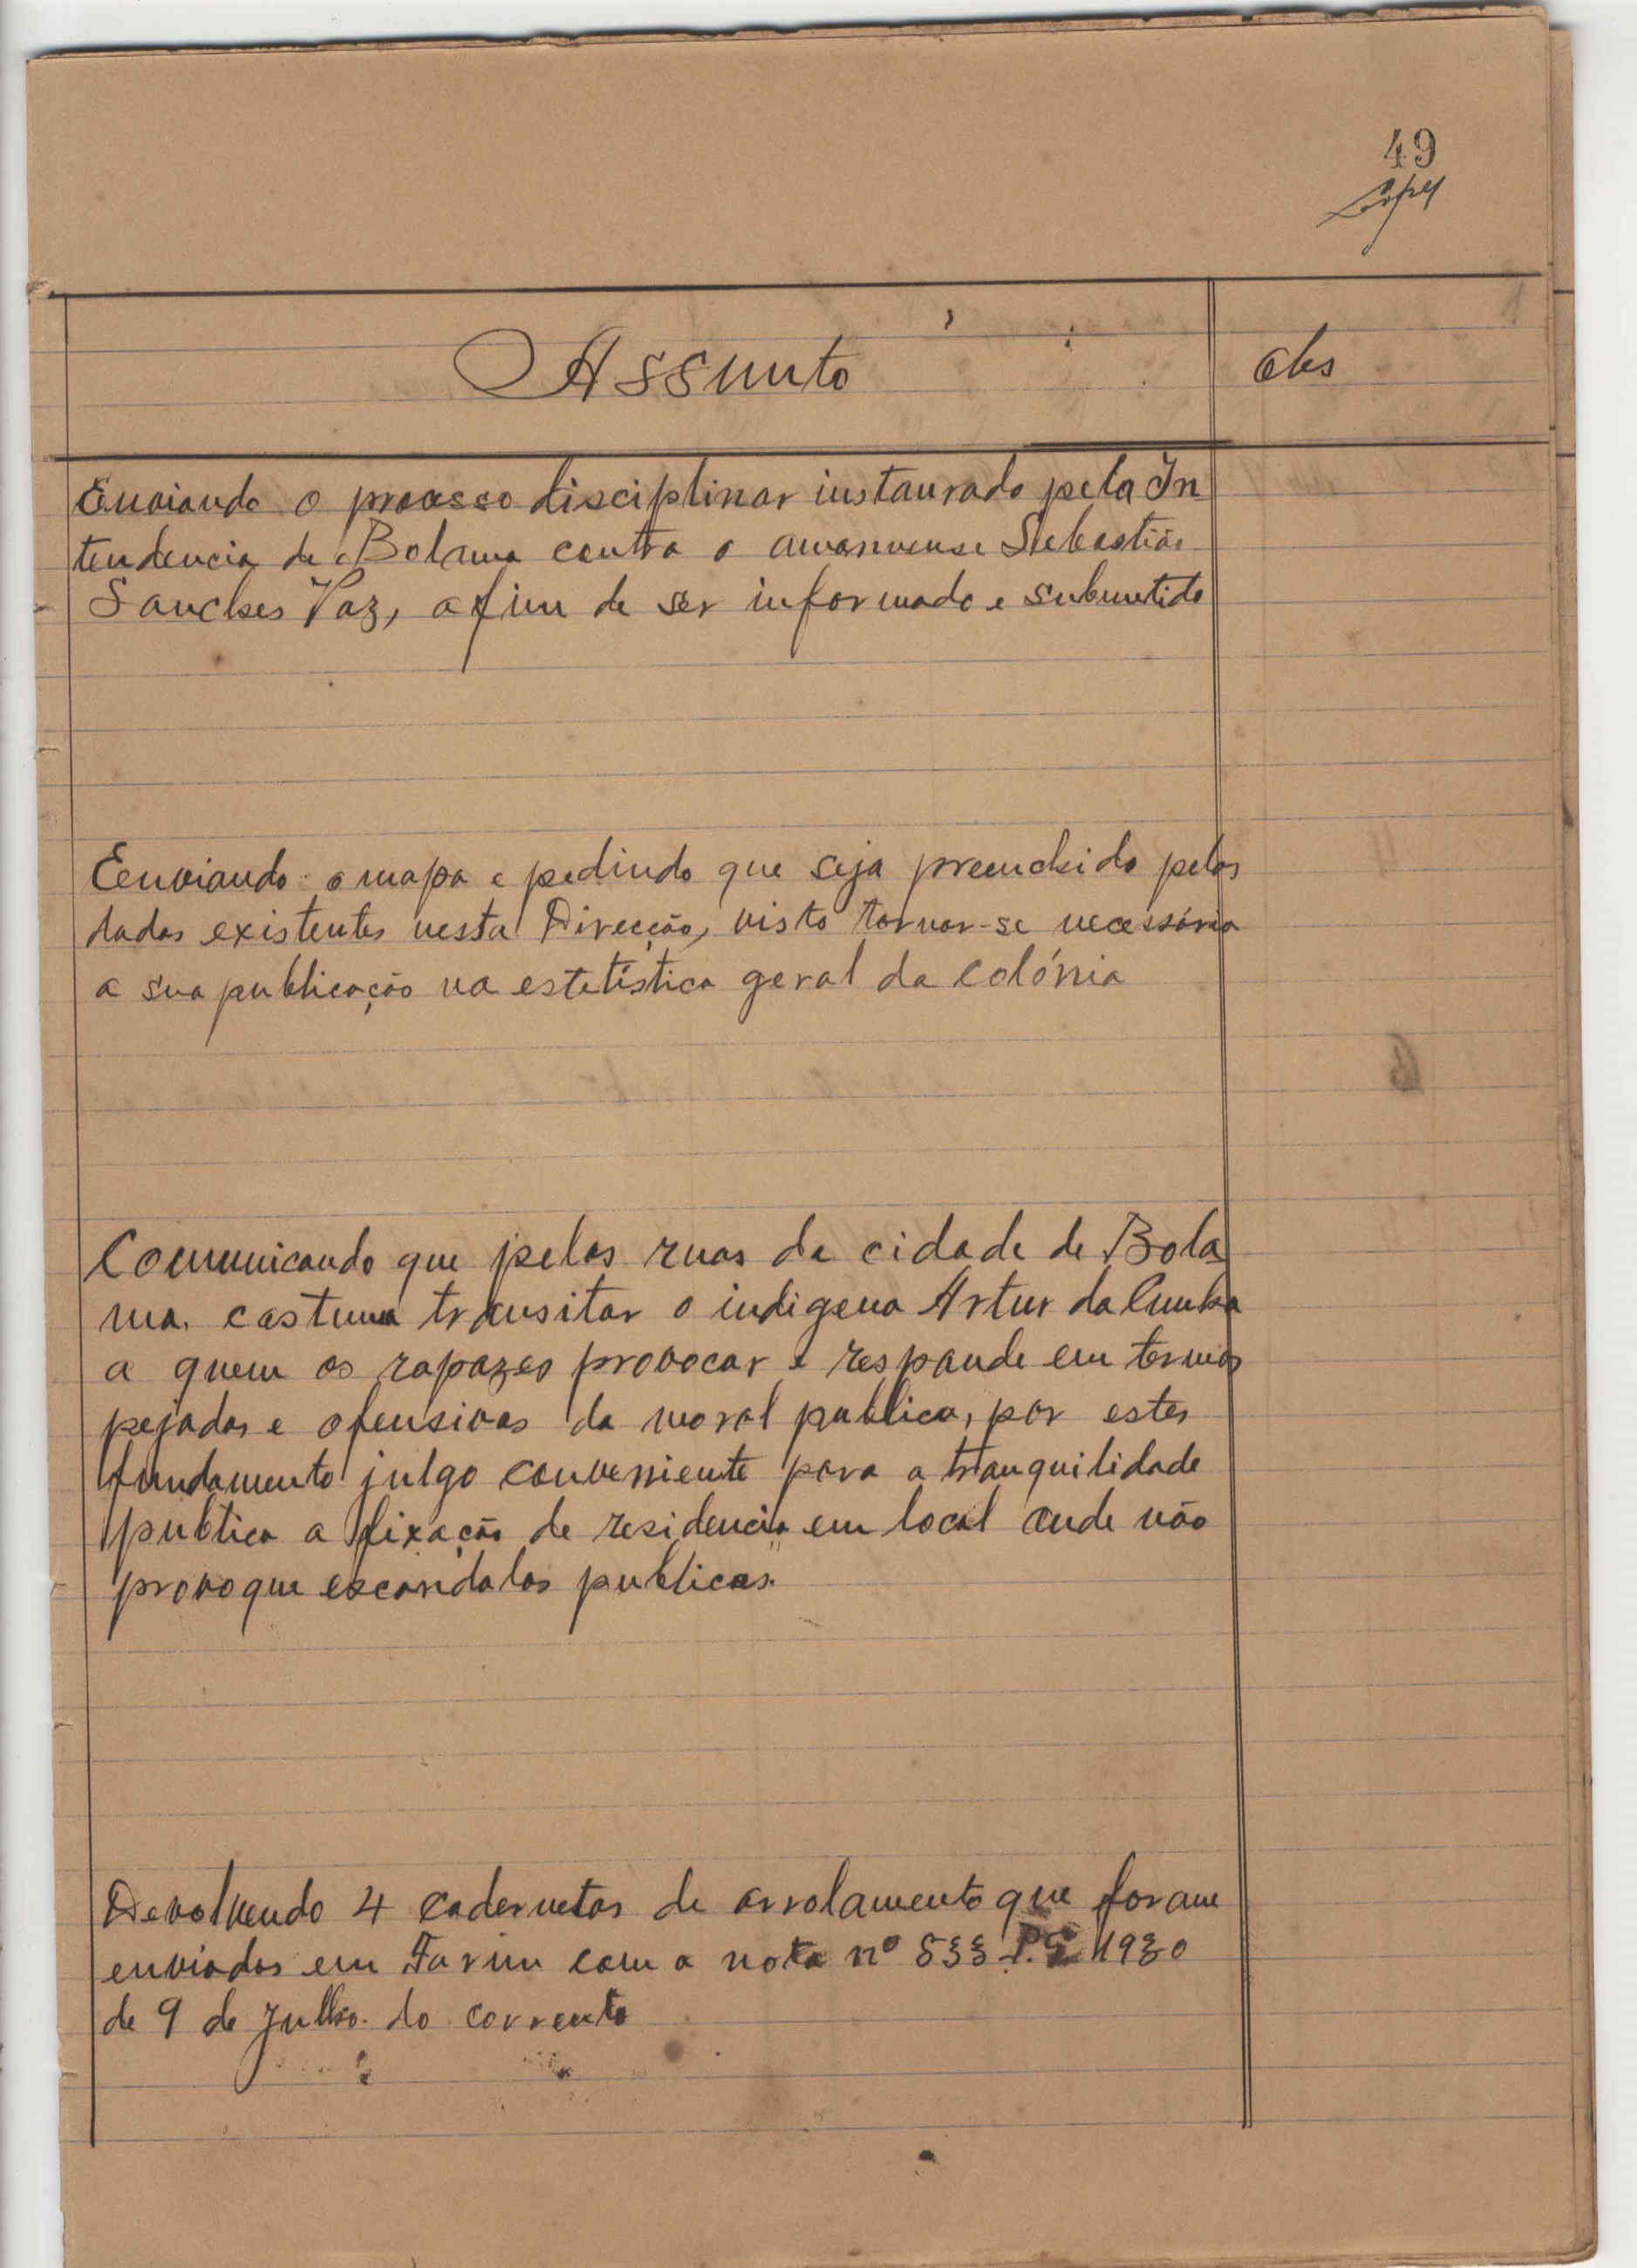 49
Assunto
obs
Enviando o processo disciplinar instaurado pela In
tendencia de Bolama contra o amanuense Sebastião
Sanches Vaz, afim de ser informado e submetido
Eenviando o mapa e pedindo que seja preenchido pelos
dados existentes nesta Direcção, visto tornar-se necessário
a sua publicação na estatística geral da colónia
Comunicando que pelas ruas da cidade de Bola
ma, costuma transitar o indigena Artur da Cunha
a quem os rapazes provocar e responde em termos
pejados e ofensivos da moral publica, por estes
fundamento julgo conveniente para a tranquilidade
publica a fixação de residencia em local onde não
provoque escandalos publicos.
Devolvendo 4 cadernetas de arrolamento que foram
enviadas em Farim com a nota nº 533 1930
de 9 de Julho do corrente